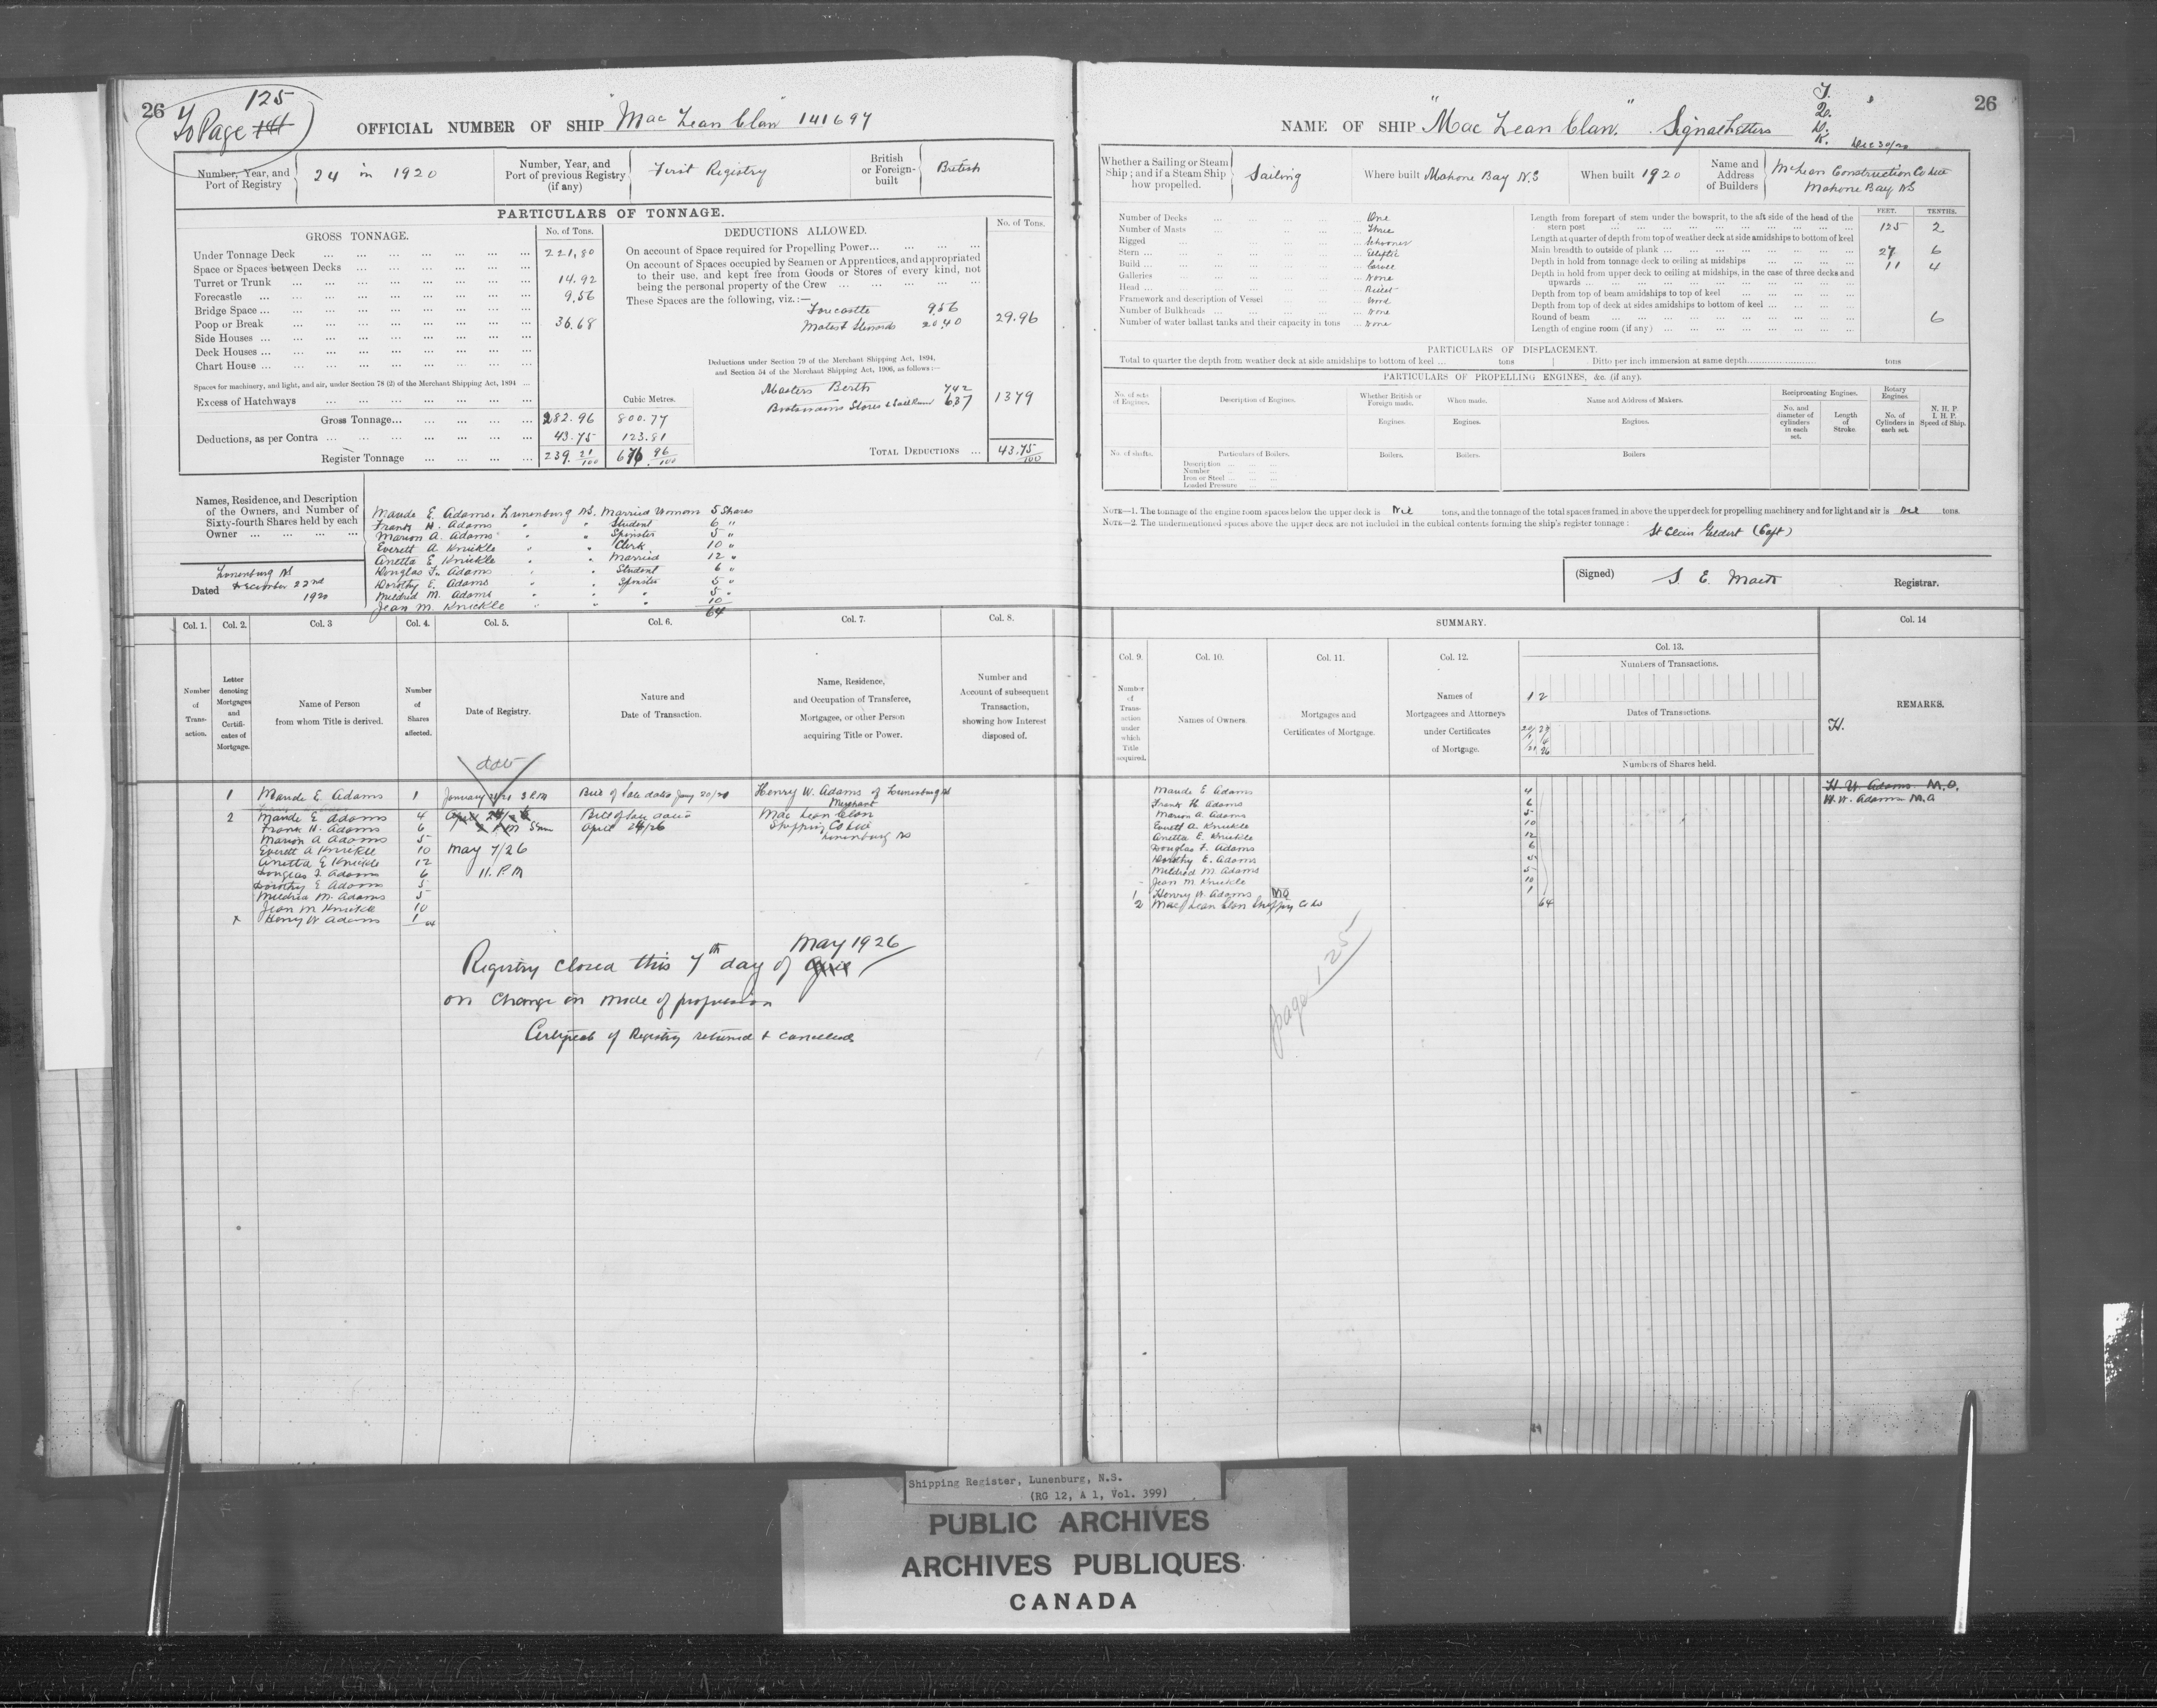 26
125
To Page 141
OFFICIAL NUMBER OF SHIP "Mac Lean Clan" 141697
Number, Year, and Port of Registry 24 in 1920
Number, Year, and Port of previous Registry (if any) First Registry
British or Foreign-built British
PARTICULARS OF TONNAGE.
GROSS TONNAGE. No. of Tons.
Under Tonnage Deck 221,80
Space or Spaces between Decks
Turret or Trunk 14.92
Forecastle 9,56
Bridge Space
Poop or Break 36.68
Side Houses
Deck Houses
Chart House
Spaces for machinery, and light, and air, under Section 78 (2) of the Merchant Shipping Act, 1894
Excess of Hatchways
Cubic Metres.
Gross Tonnage 282.96 800.77
Deductions, as per Contra 43.75 123.81
Register Tonnage 239. 21/100 676 96/100
DEDUCTIONS ALLOWED. No. of Tons.
On account of Space required for Propelling Power
On account of Spaces occupied by Seamen or Apprentices, and appropriated
to their use, and kept free from Goods or Stores of every kind, not
being the personal property of the Crew
These Spaces are the following, viz.:—
Forecastle 956
Mates & Stewards 2040 29.96
Deductions under Section 79 of the Merchant Shipping Act, 1894,
and Section 54 of the Merchant Shipping Act, 1906, as follows:—
Masters Berth 742
Boatswains Stores & Sail Room 637 1379
TOTAL DEDUCTIONS 43.75/100
Names, Residence, and Description
of the Owners, and Number of
Sixty-fourth Shares held by each
Owner
Maude E. Adams. Lunenburg NS. Married Woman 5 Shares
Frank H. Adams " " Student 6 "
Marion A. Adams " " Spinster 5 "
Everett A Knickle " " Clerk 10 "
Anetta E Knickle " " Married 12 "
Douglas F. Adams " " Student 6 "
Dorothy E. Adams " " Spinster 5 "
Mildred M. Adams " " " 5 "
Jean M. Knickle " " " 10
64
Lunenburg NS
Dated December 22nd
1920
Col. 1. Col. 2. Col. 3 Col. 4. Col. 5. Col. 6. Col. 7. Col. 8.
Number of Transaction.
Letter denoting Mortgages and Certificates of Mortgage.
Name of Person from whom Title is derived.
Number of Shares affected.
Date of Registry.
Nature and Date of Transaction.
Name, Residence, and Occupation of Transferee, Mortgagee, or other Person acquiring Title or Power.
Number and Account of subsequent Transaction, showing how Interest disposed of.
date
1 Maude E. Adams 1 January 21/21 3 P.M Bill of Sale dated Jany 20/21 Henry W. Adams of Lunenburg NS
Merchant
2 Maude E Adams 4 April 24/26 Bill of Sale dated Mac Lean Clan
Frank H. Adams 6 April 24/26 Shipping Co Ltd
Marion A Adams 5 Lunenburg NS
Everett A Knickle 10 May 7/26
Anetta E Knickle 12
Douglas F Adams 6 11. P.M
Dorothy E Adams 5
Mildred M. Adams 5
Jean M Knickle 10
x Henry W Adams 1 64
May 1926
Registry closed this 7th day of April
on change in mode of propulsion
Certificate of Registry returned & cancelled
26
NAME OF SHIP "Mac Lean Clan." Signal Letters
T.
Q.
D.
K.
Dec 30/20
Whether a Sailing or Steam Ship; and if a Steam Ship how propelled. Sailing
Where built Mahone Bay N.S
When built 1920
Name and Address of Builders McLean Construction Co Ltd
Mahone Bay NS
Number of Decks One
Number of Masts Three
Rigged Schooner
Stern Eliptic
Build Carvel
Galleries None
Head Billet
Framework and description of Vessel Wood
Number of Bulkheads None
Number of water ballast tanks and their capacity in tons None
FEET. TENTHS.
Length from forepart of stem under the bowsprit, to the aft side of the head of the
stern post 125 2
Length at quarter of depth from top of weather deck at side amidships to bottom of keel
Main breadth to outside of plank 27 6
Depth in hold from tonnage deck to ceiling at midships 11 4
Depth in hold from upper deck to ceiling at midships, in the case of three decks and
upwards
Depth from top of beam amidships to top of keel
Depth from top of deck at sides amidships to bottom of keel
Round of beam 6
Length of engine room (if any)
PARTICULARS OF DISPLACEMENT.
Total to quarter the depth from weather deck at side amidships to bottom of keel tons Ditto per inch immersion at same depth tons
PARTICULARS OF PROPELLING ENGINES, &c. (if any).
No. of sets of Engines. Description of Engines. Whether British or Foreign made. When made. Name and Address of Makers. Reciprocating Engines. Rotary Engines.
Engines. Engines. Engines. No. and diameter of cylinders in each set. Length of Stroke. No. of Cylinders in each set. N. H. P. I. H. P. Speed of Ship.
No. of shafts. Particulars of Boilers. Boilers. Boilers. Boilers
Description
Number
Iron or Steel
Loaded Pressure
NOTE—1. The tonnage of the engine room spaces below the upper deck is Nil tons, and the tonnage of the total spaces framed in above the upper deck for propelling machinery and for light and air is Nil tons.
NOTE—2. The undermentioned spaces above the upper deck are not included in the cubical contents forming the ship's register tonnage:
St Clair Geldert (Capt)
(Signed) Registrar.
SUMMARY.
Col. 9. Col. 10. Col. 11. Col. 12. Col. 13. Col. 14
Number of Transaction under which Title acquired.
Names of Owners.
Mortgages and Certificates of Mortgage.
Names of Mortgagees and Attorneys under Certificates of Mortgage.
Numbers of Transactions.
1 2
Dates of Transactions.
Numbers of Shares held.
REMARKS.
H.
Maude E Adams 4
Frank H. Adams 6
Marion A. Adams 5
Everett A. Knickle 10
Anetta E. Knickle 12
Douglas F. Adams 6
Dorothy E. Adams 5
Mildred M. Adams 5
Jean M. Knickle 10
1 Henry W. Adams MO 1
2 Mac Lean Clan Shipping Co Ld 64
H. W Adams M.O.
H. W. Adams M.O
page 125
Shipping Register, Lunenburg, N.S.
(RG 12, A 1, Vol. 399)
PUBLIC ARCHIVES
ARCHIVES PUBLIQUES
CANADA